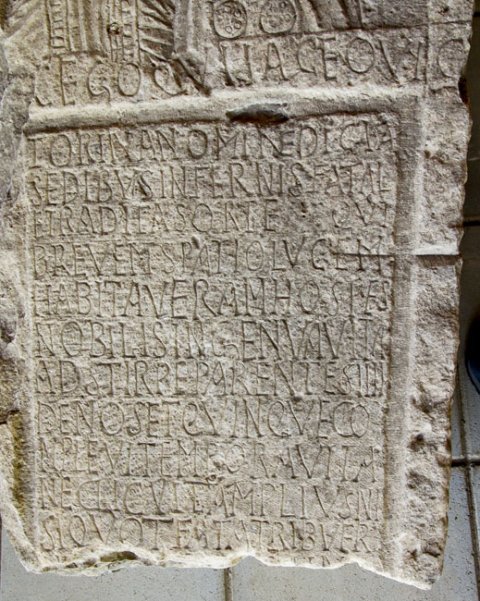 EGO QVI IACEO VIC
TORINA NOMINE DICTA
SEDIBVS INFERNIS FATAL
E TRADITA SORTE CVI
BREVEM SPATIO LVCEM
HABITAVERAM
NOBILIS INGENVA VITA
AD STIRPE PARENTES III
DENOS ET QVINQVE CO
NPLEVI TEMPORA VITA
NEC LICVIT AMPLIVS NI
SI QVOT FATA TRIBVER